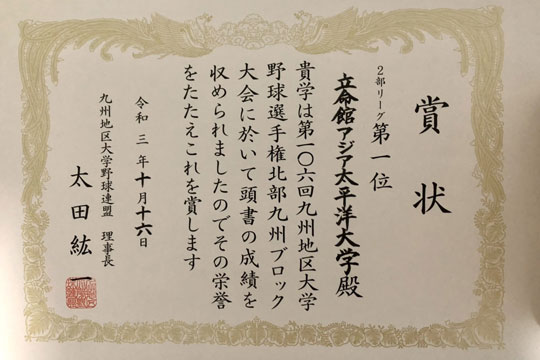 賞状
2部リーグ 第一位
立命館アジア太平洋大学殿
貴学は第一〇六回九州地区大学
野球選手権北部九州ブロック
大会に於いて頭書の成績を
収められましたのでその栄誉
をたたえこれを賞します
令和三年十月十六日
九州地区大学野球連盟 理事長
太田紘一